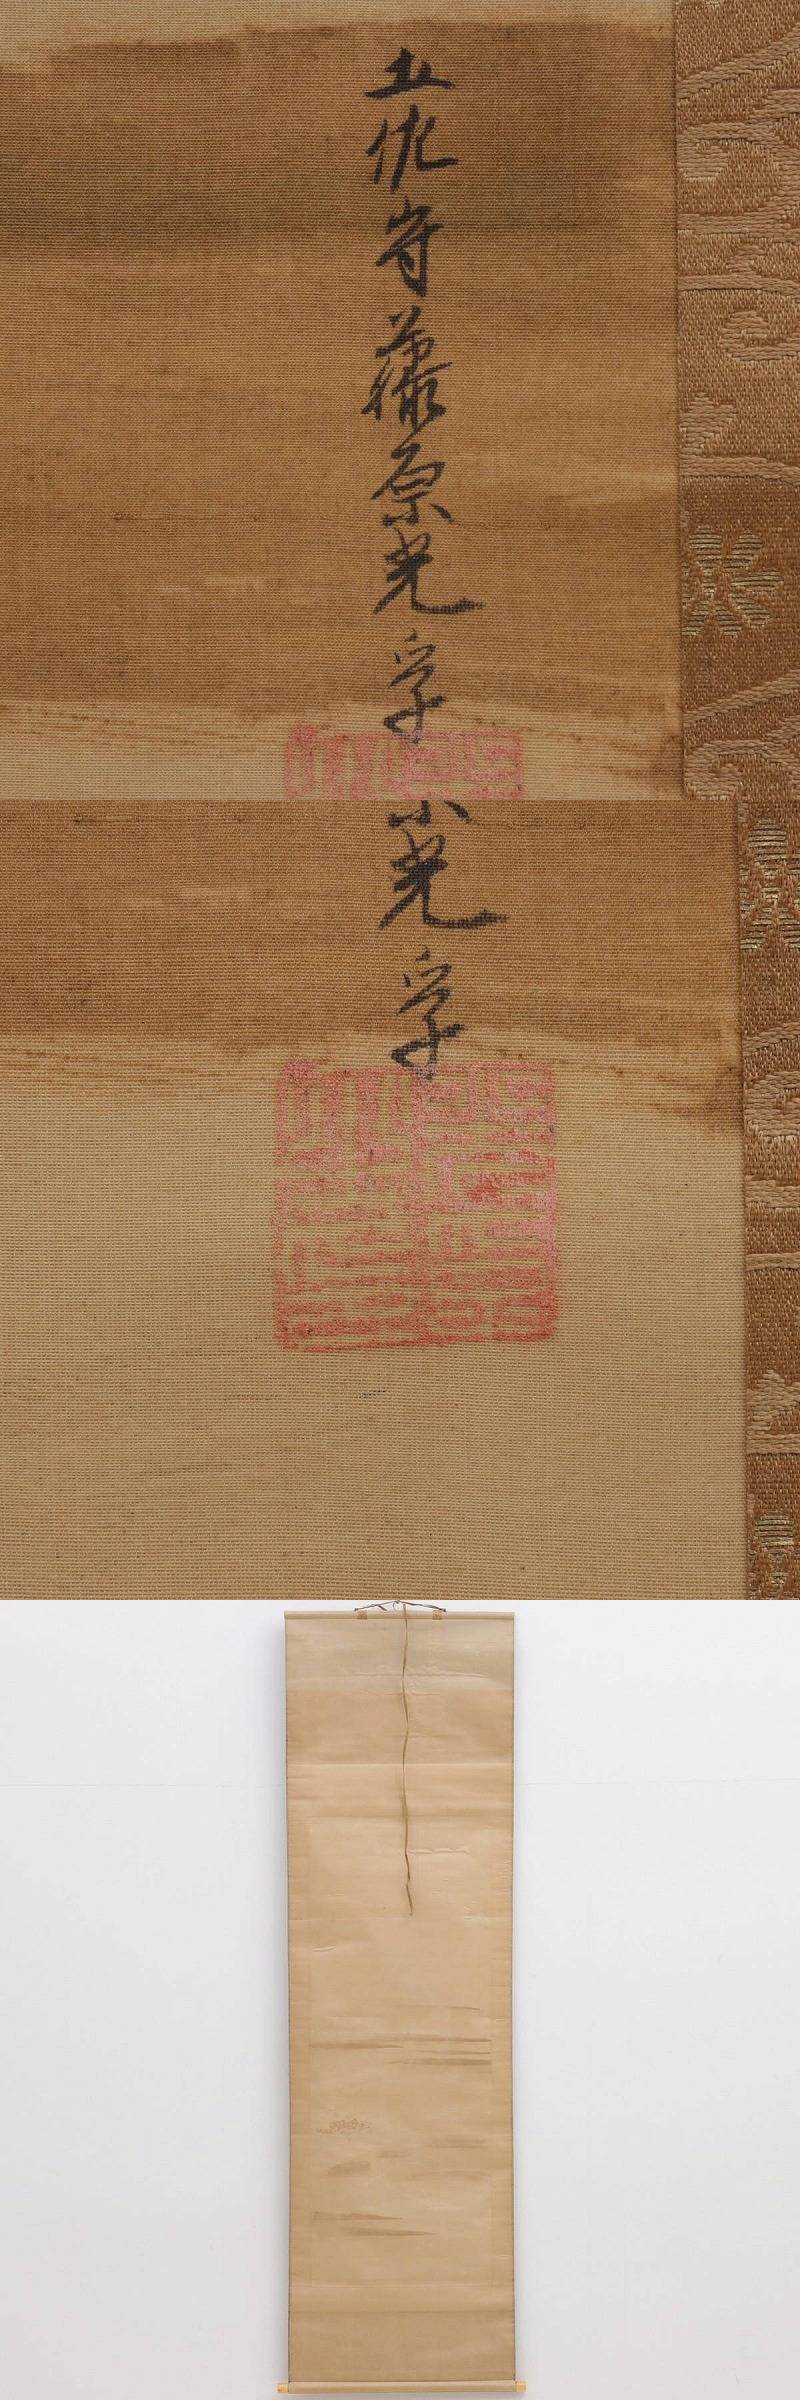 土佐守藤原光孚
光孚